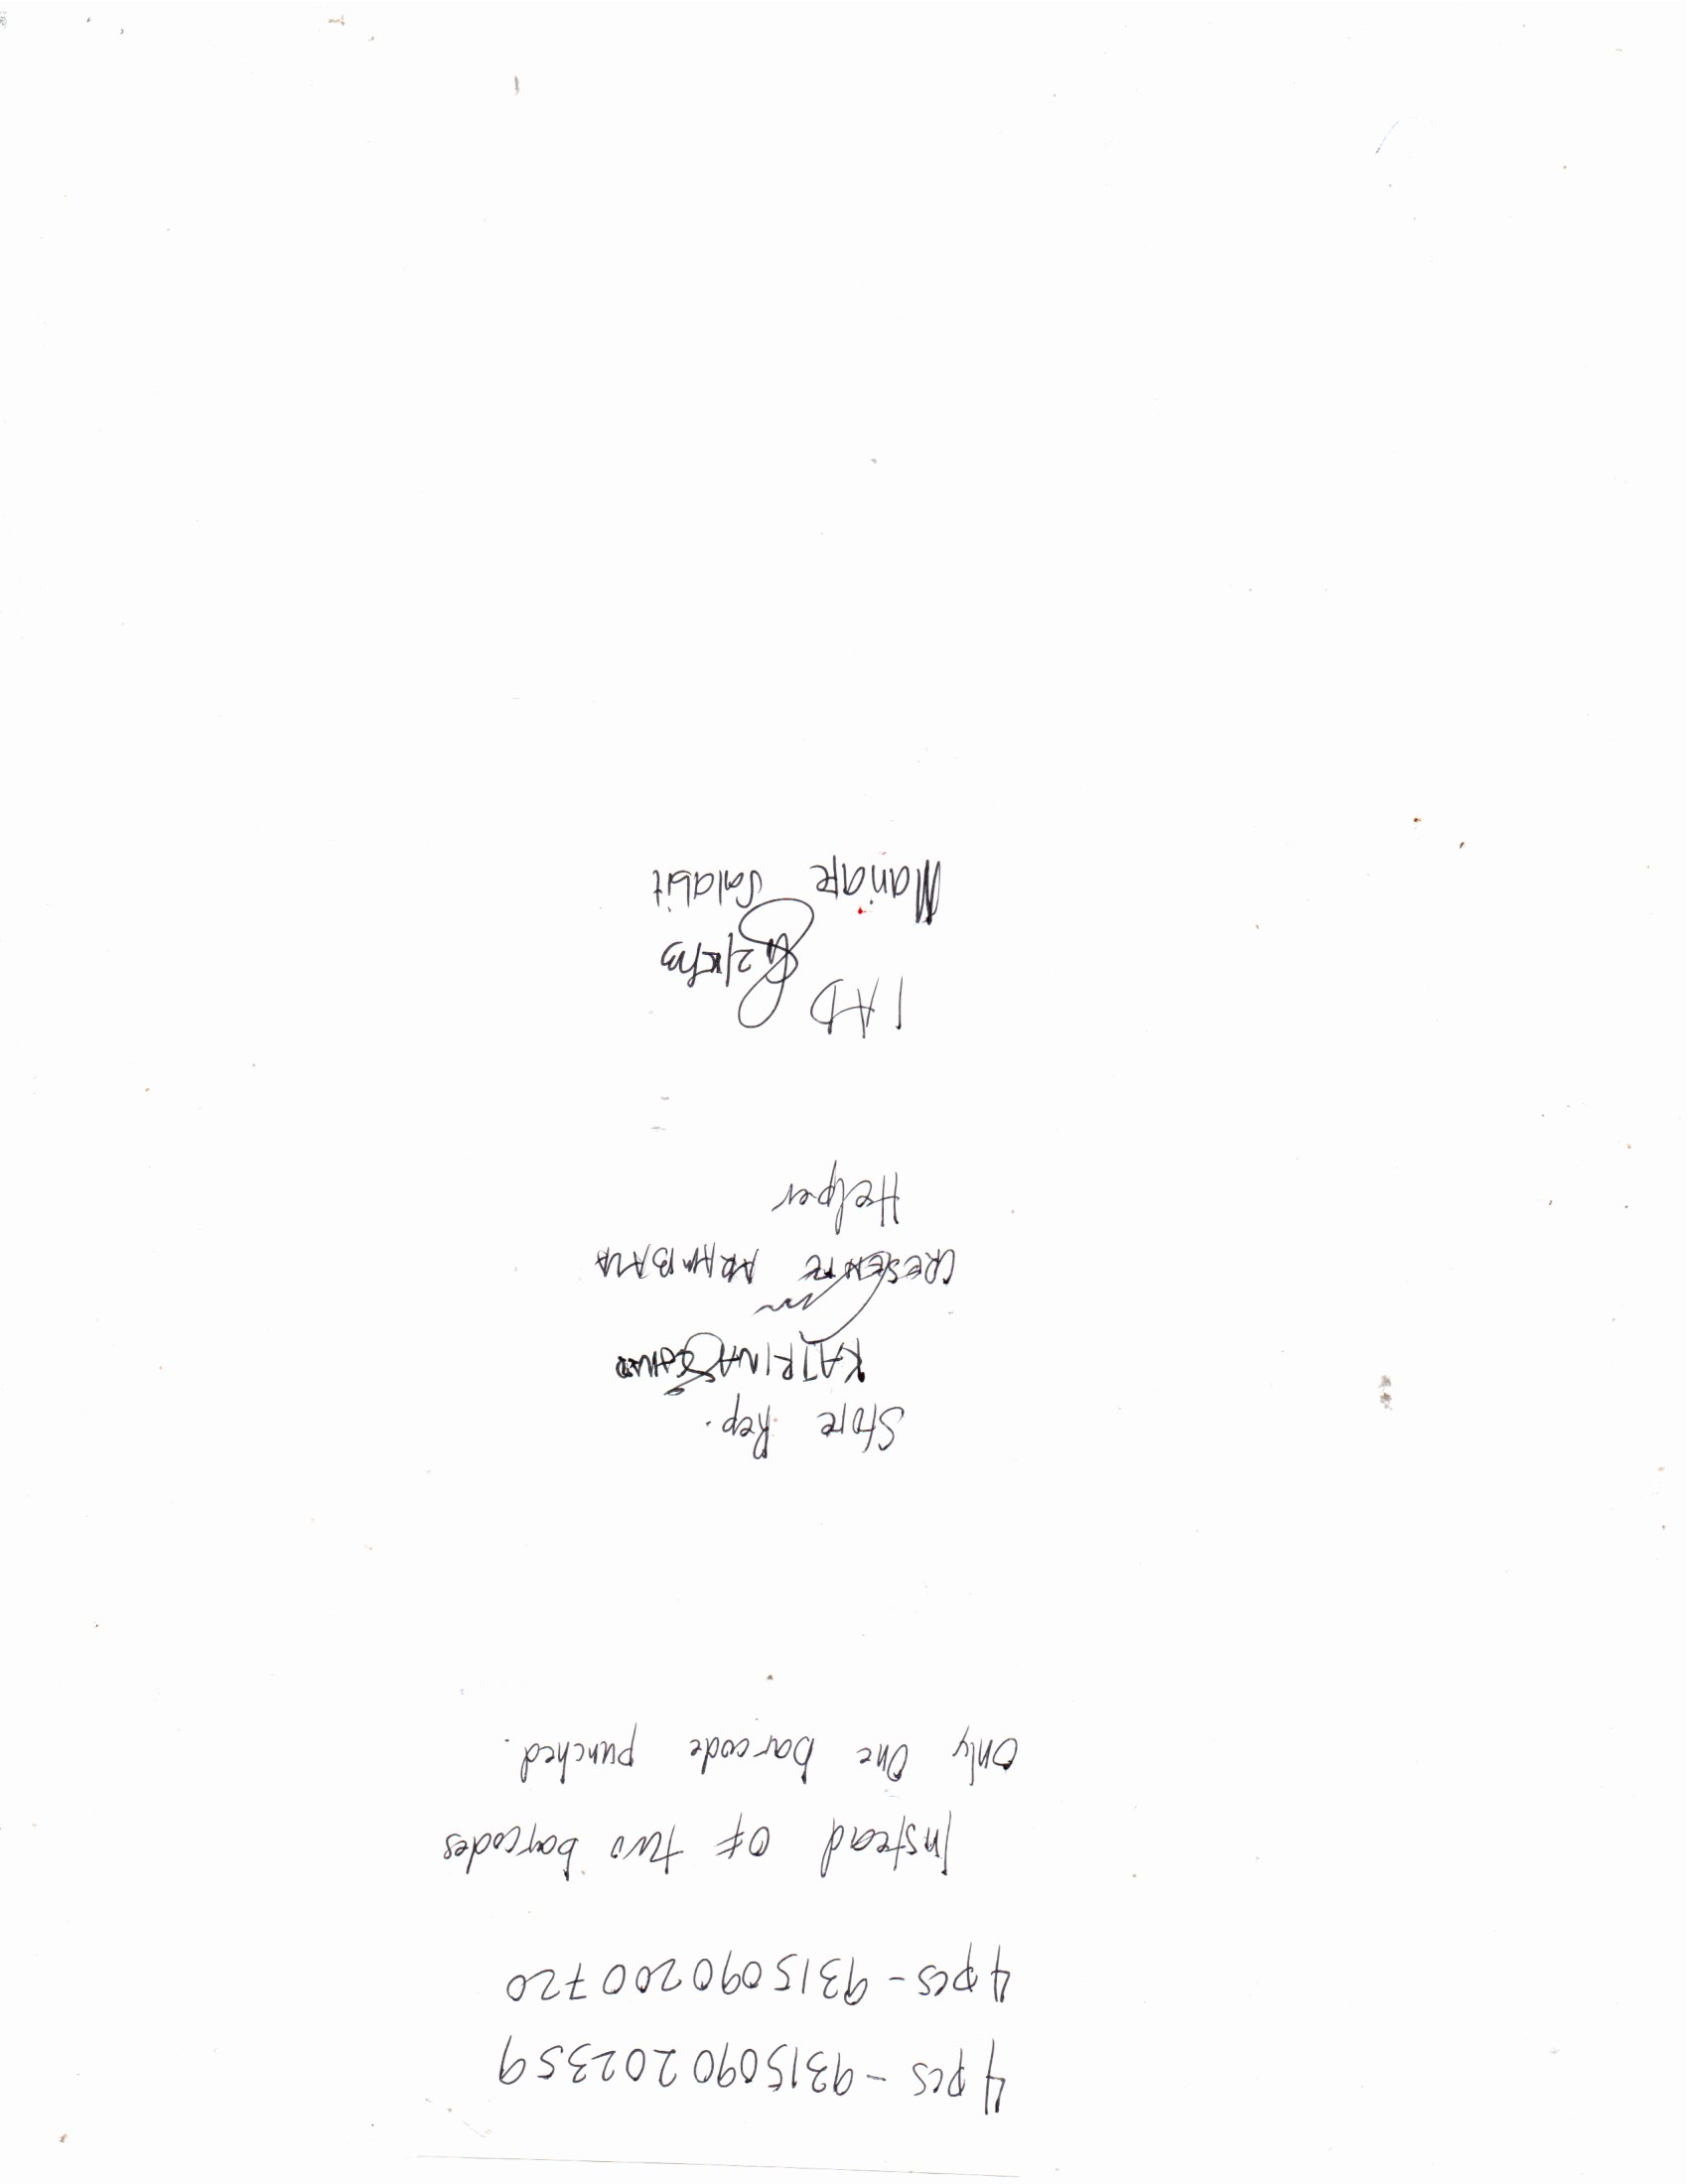 4pcs - 9315090202359
4pcs - 9315090200720
Instead of two barcodes
Only One barcode punched.
Store Rep.
KATRINA
CRESENTE ARAMBALA
Helper
IAD
Maridfe Salabit